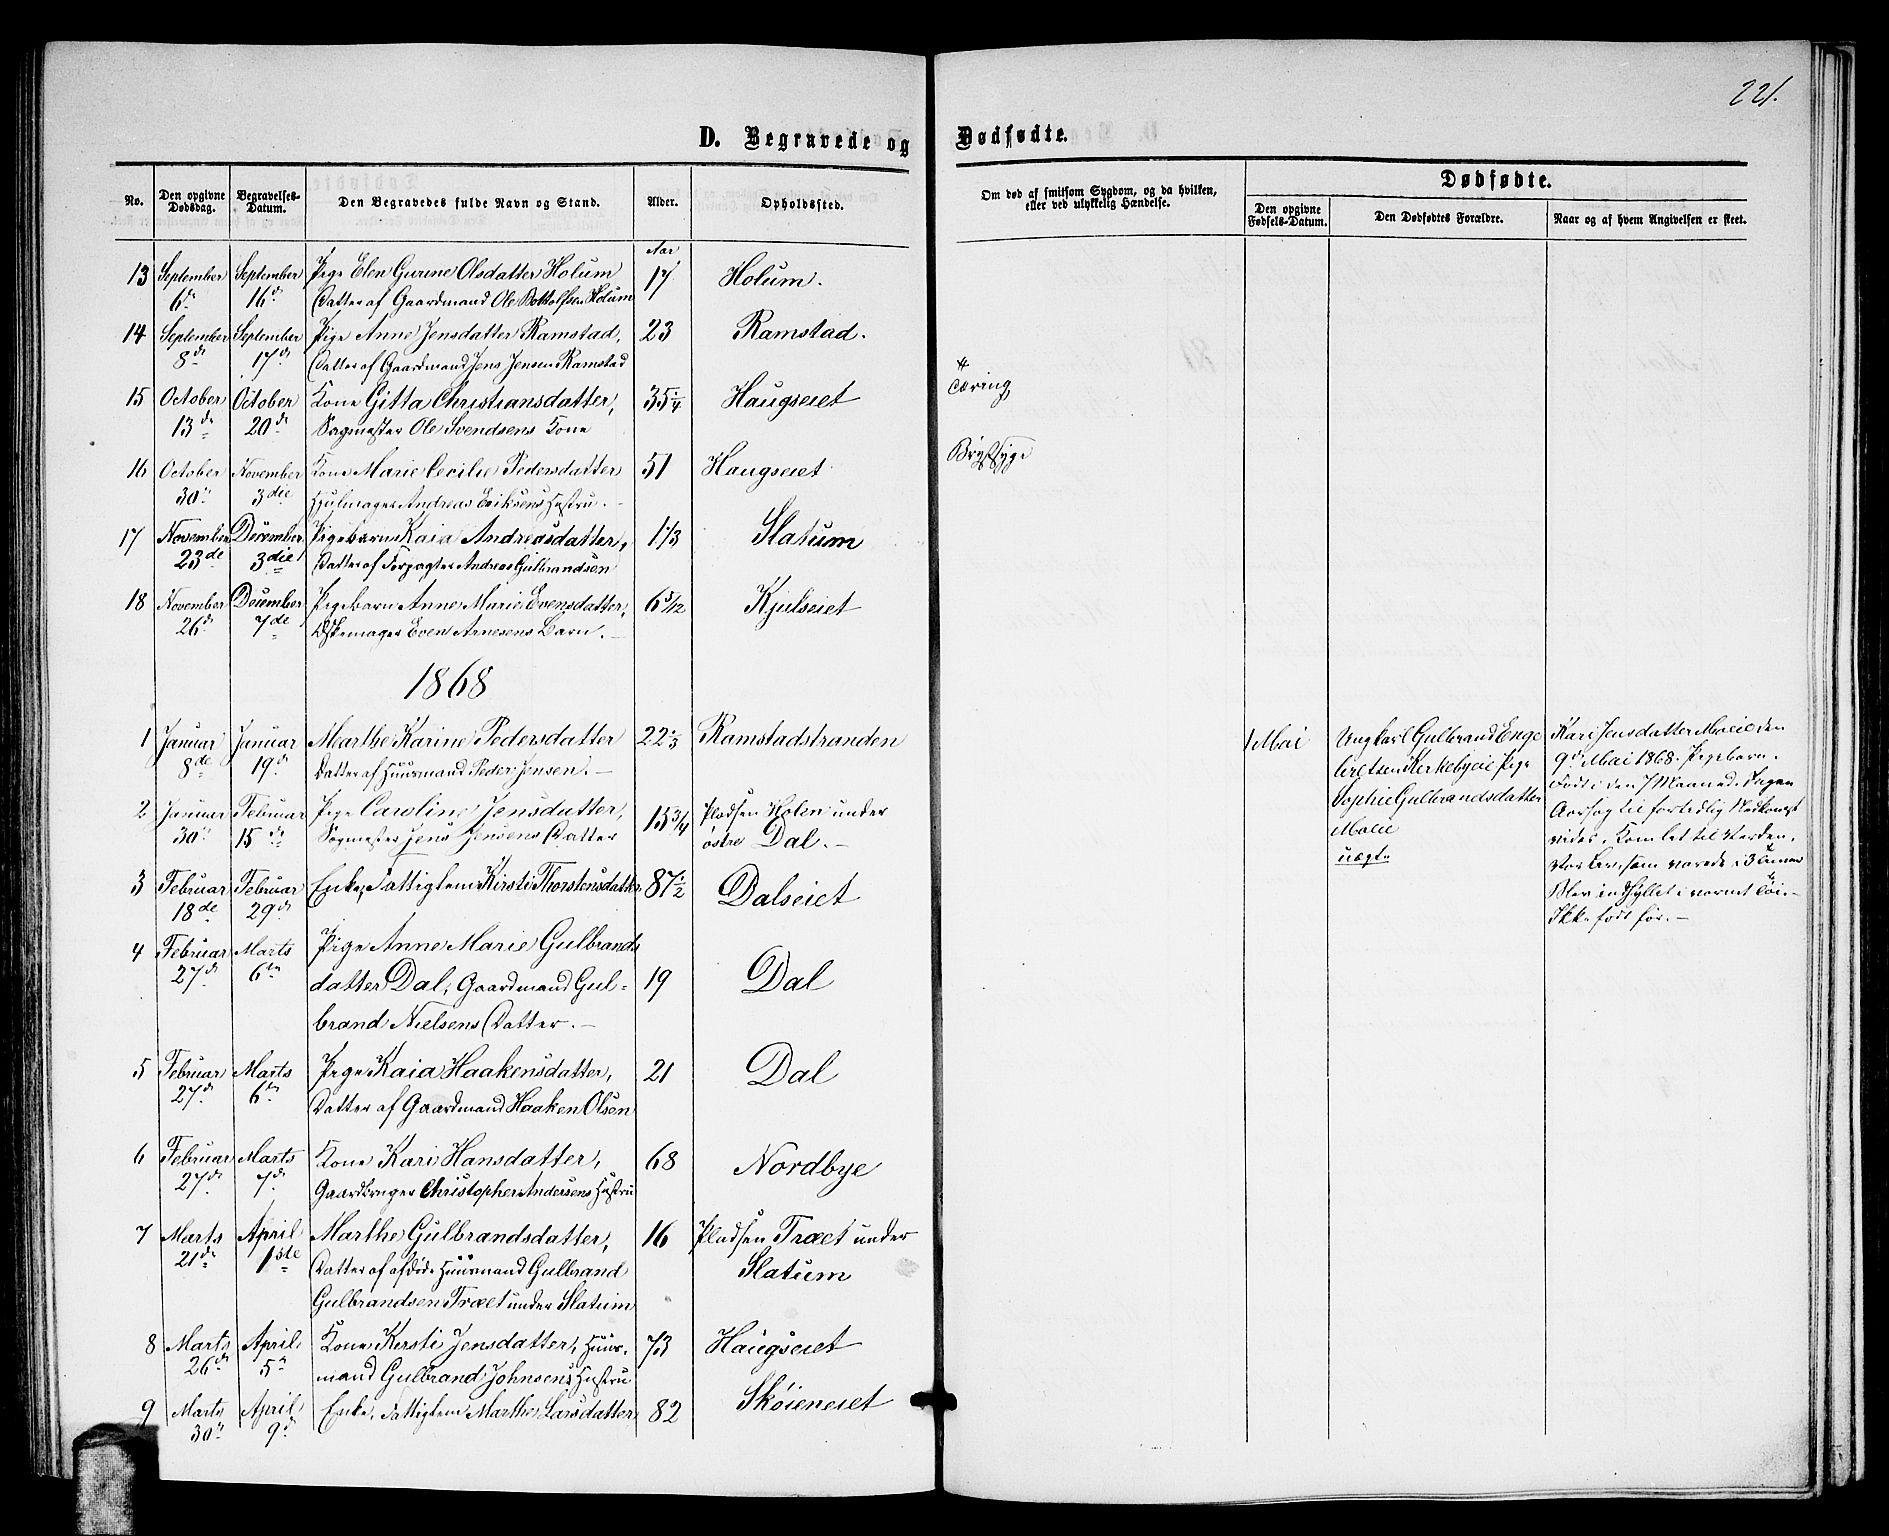 221.
D. Begravede og Dødfødte.
No. Den opgivne Dødsdag. Begravelses-Datum. Den Begravedes fulde Navn og Stand. Alder. Opholdssted. Om død af smitsom Sygdom, og da hvilken, eller ved ulykkelig Hændelse.
Dødfødte.
Den opgivne Fødsels-Datum. Den Dødfødtes Forældre. Naar og af hvem Angivelsen er skeet.
Aar
13 September September Pige Elen Gurine Olsdatter Holum 17 Holum.
6de 16de Datter af Gaardmand Ole Bottolfsen Holum
14 September September Pige Anne Jensdatter Ramstad, 23 Ramstad.
8de 17de Datter af Gaardmand Jens Jensen Ramstad
15 October October Kone Gitta Christiansdatter, 35 1/4 Haugseiet Tæring
13de 20de Sagmester Ole Svendsens Kone
16 October November Kone Marie Cecilie Pedersdatter 51 Haugseiet Brystsyge
30te 3die Hjulmager Andreas Eriksens Hustru.
17 November December Pigebarn Kaia Andreasdatter, 1 1/3 Slatum
23de 3die Datter af Forpagter Andreas Gulbrandsen
18 November December Pigebarn Anne Marie Evensdatter, 6 5/12 Kjulseiet
26de 7de Even Arnesens Barn.
1868
1 Januar Januar Marthe Karine Pedersdatter 22 1/3 Ramstadstranden
8de 19de Datter af Huusmand Peder Jensen.
2 Januar Februar Pige Caroline Jensdatter, 15 3/4 Pladsen Holen under
30te 15de Sagmester Jens Jensens Datter østre Dal.
3 Februar Februar Enke, Fattiglem Kirsti Thorstensdatter 87 1/2 Dalseiet
18de 29de
4 Februar Marts Pige Anne Marie Gulbrands
27de 6te datter Dal, Gaardmand Gul- 19 Dal
brand Nielsens Datter.
5 Februar Marts Pige Kaia Haakensdatter, 21 Dal
27de 6te Datter af Gaardmand Haaken Olsen
6 Februar Marts Kone Kari Hansdatter, 68 Nordbye
27de 7de Gaardbruger Christopher Andersens Hustru
7 Marts April Marthe Gulbrandsdatter, 16 Pladsen Træet under
21de 1ste Datter af afdøde Huusmand Gulbrand Slatum
Gulbrandsen Træet under Slatum
8 Marts April Kone Kersti Jensdatter, Huus- 73 Haugseiet
26de 5te mand Gulbrand Johnsens Hustru
9 Marts April Enke, Fattiglem Marthe Larsdatter 82 Skøieneiet
30te 9de
1 Mai
Ungkarl Gulbrand Enge
bretsen Kirkebyeie Pige
Sophie Gulbrandsdatter
Moeie
uægte
Kari Jensdatter Moeie den
9de Mai 1868. Pigebarn.
Født i den 7 Maaned. Ingen
Aarsag til fortidlig Nedkomst
vides. Kom let til Verden.
Var Liv, som varede i 3
Blev indhyllet i varmt Tøi.
Ikke født før.